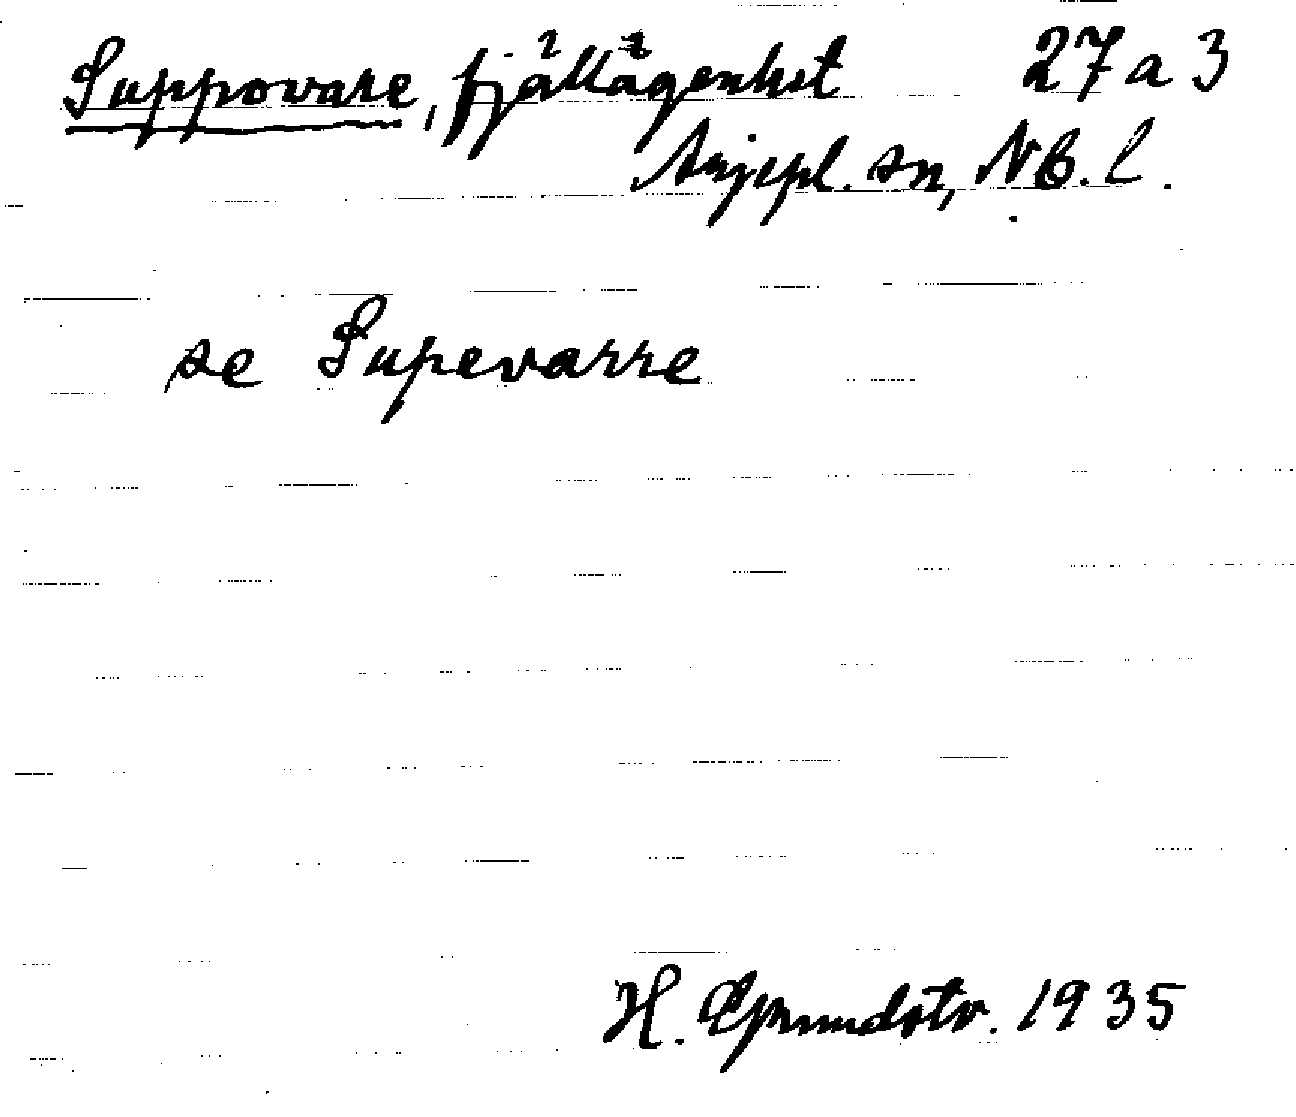 Suppovare, fjällägenhet 27 a 3
Arjepl. sn, NB. l.
se Supevarre
H. Grundstr. 1935